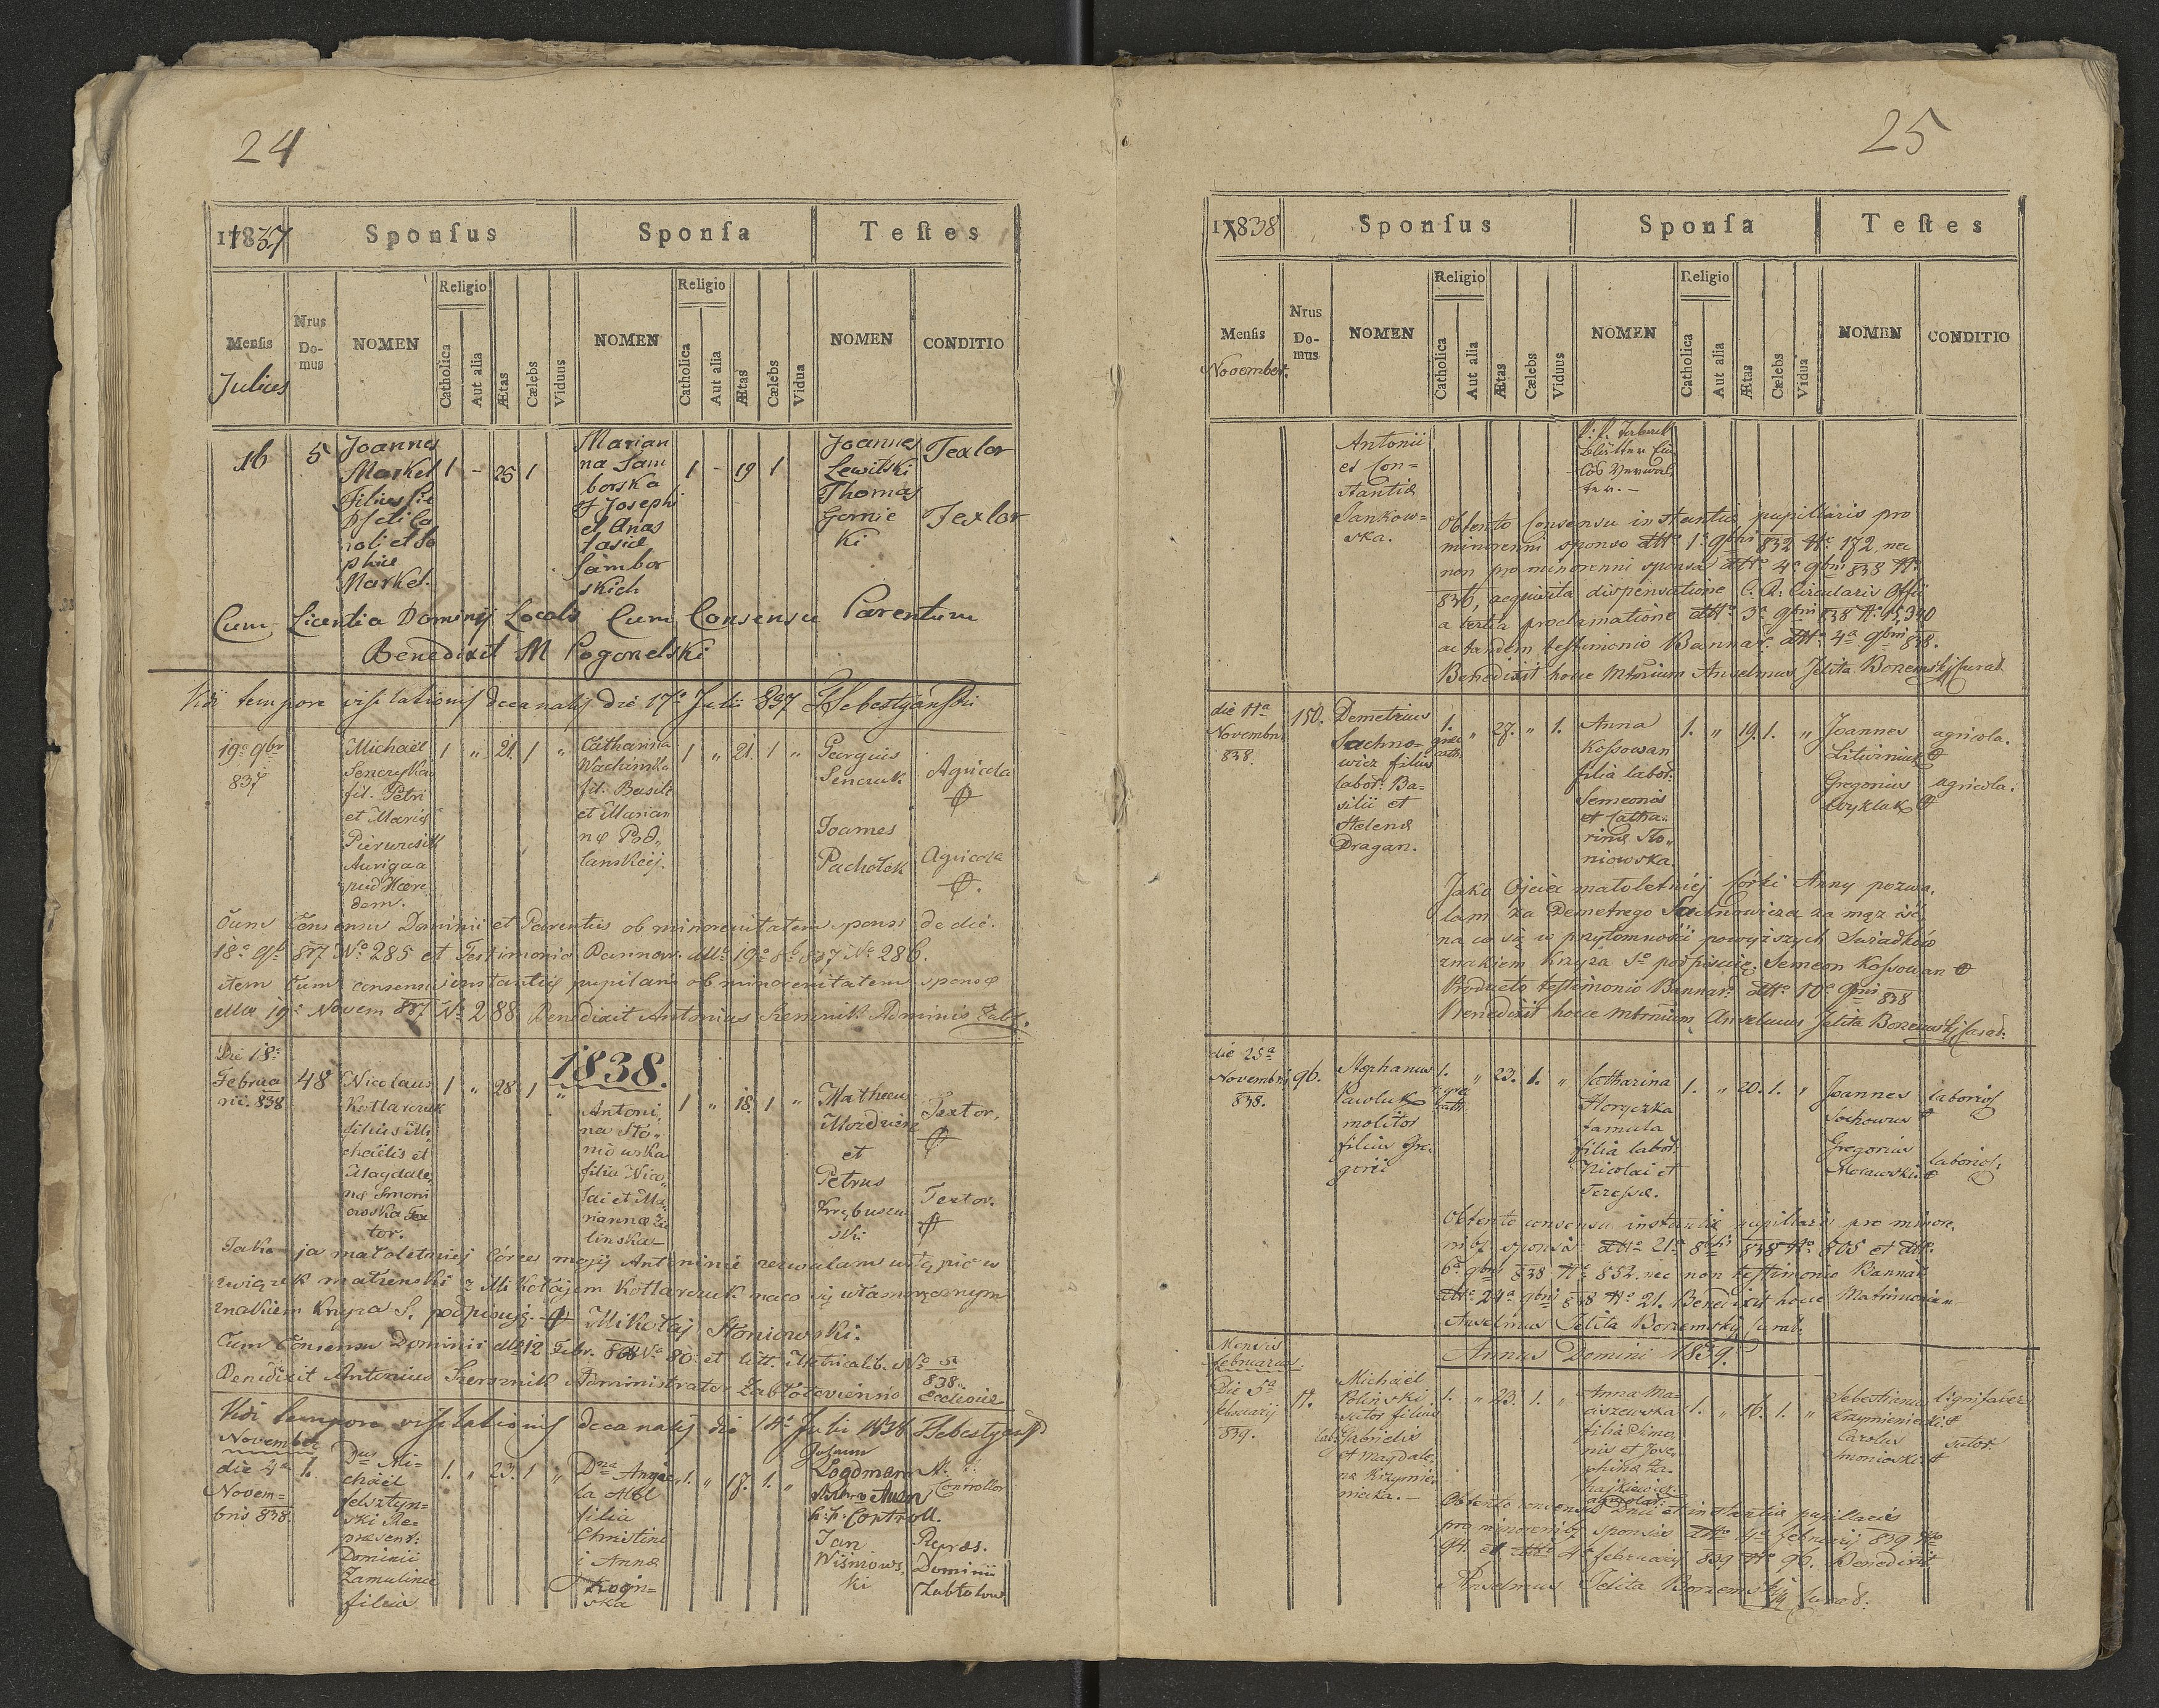 24
1837
Sponſus
Sponſa
Teſtes
Menſis
Julius
Nrus
Do-
mus
NOMEN
Religio
Catholica
Aut alia
Ætas
Cælebs
Viduus
NOMEN
Religio
Catholica
Aut alia
Ætas
Cælebs
Vidua
NOMEN
CONDITIO
16
5
Joannes
Markel
Filius
phiæ
Markel.
1 - 25 1
Marian
na Sam
borska
f Josephi
et Anas
tasiæ
Sambor
skich
1 - 19 1
Joannes
Lewitski
Thomas
Gornic
ki
Textor
Textor
Cum Licentia Dominij Localis Cum Consensu Parentum
Benedixit M Pogorelski
Vidi tempore visitationis decanalis die 17ª Julii 837
19ª 9br
837
Michael
fil. Petri
et Mariæ
Auriga a
pud Hære
dem.
1 „ 21. 1 „
Catharina
fil. Basilii
et Marian
næ Pod„
lanskiej.
1 „ 21 1 „
Georgius
Senczuk
Joannes
Pachołek
Agricola
Agricola
Cum Consensu Dominii et Parentis ob minorenitatem sponsi de die.
18ª 9b 837 Nº 285 et Testimonio Bannor. 19ª 837 Nº 286.
item Cum consensu instantiæ pupilaris ob minorenitatem sponsæ
19ª Novem 837 Nº 288 Benedixit Antonius Adminis
1838.
Die 18ª
Februa
rii. 838
48
Nicolaus
Kotlarczuk
filius Mi„
chaelis et
Magdale„
næ Smoni
owska Tex
tor.
1 „ 28 1 „
Antoni„
na Sło„
niowska
filia Nico„
lai et Ma„
riannæ Zie
linska
1 „ 18 1 „
Matheus
et
Petrus
Textor,
Textor.
Jako ja małoletniej Córce mojej Antoninie zezwalam wstąpić w
związek małżenski z Mikołajem Kotlarczuk na co się własnoręcznym
znakiem Krzyża S. podpisuję. Mikołaj Słoniowski.
Cum Consensu Dominii 12 Febr. 838 Nº 80 et litt.
838.
Benedixit Antonius Administrator Zabłotoviensis Ecclesiæ
Vidi tempore visitationis decanalis die 14ª Julii 1838
November
die 4ª
Novem=
bris 838.
1.
Dus Mi=
chaël
felsztyn=
ski Re=
præsent:
Dominii
Zamulince
filius
1. „ 23. 1 „
Dna Ange
la Abl
filia
Christini
i Annæ
1. „ 17. 1. „
Johann
Logdman
k. k. Controll.
Jan
Wiśniows„
ki
Controllor
Repræs.
Dominii
Zabłotow
25
1838
Sponſus
Sponſa
Teſtes
Menſis
November.
Nrus
Do-
mus
NOMEN
Religio
Catholica
Aut alia
Ætas
Cælebs
Viduus
NOMEN
Religio
Catholica
Aut alia
Ætas
Cælebs
Vidua
NOMEN
CONDITIO
Antonii
et Con=
stantiæ
Jankow=
ska.
Obtento Consensu instantiæ pupillaris pro
minorenni sponso 1ª 9bris 832 Nº 172, nec
non pro minorenni sponsa 4ª 9bris 838 Nº
836, acquisita dispensatione C. R. Circularis Offii
a tertia proclamatione 3ª 9bris 838 Nº 15,340
ac tandem testimonio Bannar. 4ª 9bris 838.
Benedixit hocce Mtrium Anselmus Jelita Borzemskij curat
die 11ª
Novembri
838.
150.
Demetrius
Sachno=
wicz filius
labor: Ba=
silii et
Helenæ
Dragan.
1.
græci
cath.
„ 27. „ 1.
Anna
Koſsowan
filia labor.
Semeonis
et Catha„
rinæ Sło„
niowska.
1. „ 19. 1. „
Joannes
Litwiniuk
Gregorius
Wykluk
agricola.
agricola.
Jako Ojciec małoletniej Córki Anny pozwa„
lam za Demetrego Sachnowicza za mąż iść,
na co się w przytomności powyższych Swiadków
znakiem Krzyża Sº podpisuię. Semeon Koſsowan
Producto testimonio Bannar. 10ª 9bris 838
Benedixit hocce mtrnium Anselmus Jelita Borzemskij curat:
die 25ª
Novembris
838.
96.
Stephanus
Pawluk
molitor
filius Gre„
gorii
1.
græ
cath
„ 23. 1. „
Catharina
Horyczka
famula
filia labor.
Nicolai et
Tereſsæ.
1. „ 20. 1. „
Joannes
Gregorius
laborios
laborios:
Obtento consensu instantiæ pupillaris pro minore„
nibs sponsis 21ª 8bris 838 Nº 805 et
6ª 9bris 838 Nº 852. nec non testimonio Bannar.
24ª 9bris 838 Nº 21. Benedixit hocce Matrimonium
Anselmus Jelita Borzemskij Curat.
Annus Domini 1839.
Mensis
februarius.
Die 5ª
februarij
839.
17.
Michael
Polinski
sutor filius
lab: Gabrielis
et Magdale„
næ Krzymie„
niecka.
1. „ 23. 1. „
Anna Ma=
ciszewska
filia Simo„
nis et Jose„
phinæ Za„
1. „ 16. 1. „
Sebestianus
Krzymieniecki
Carolus
Smoniowski
lignifaber
sutor.
Obtento consensu Dnii et instantiæ pupillaris
pro minorenibs sponsis 4ª februarij 839 Nº
94. et 4ª februarij 839 Nº 96. Benedixit
Anselmus Jelita Borzemskij Curat.